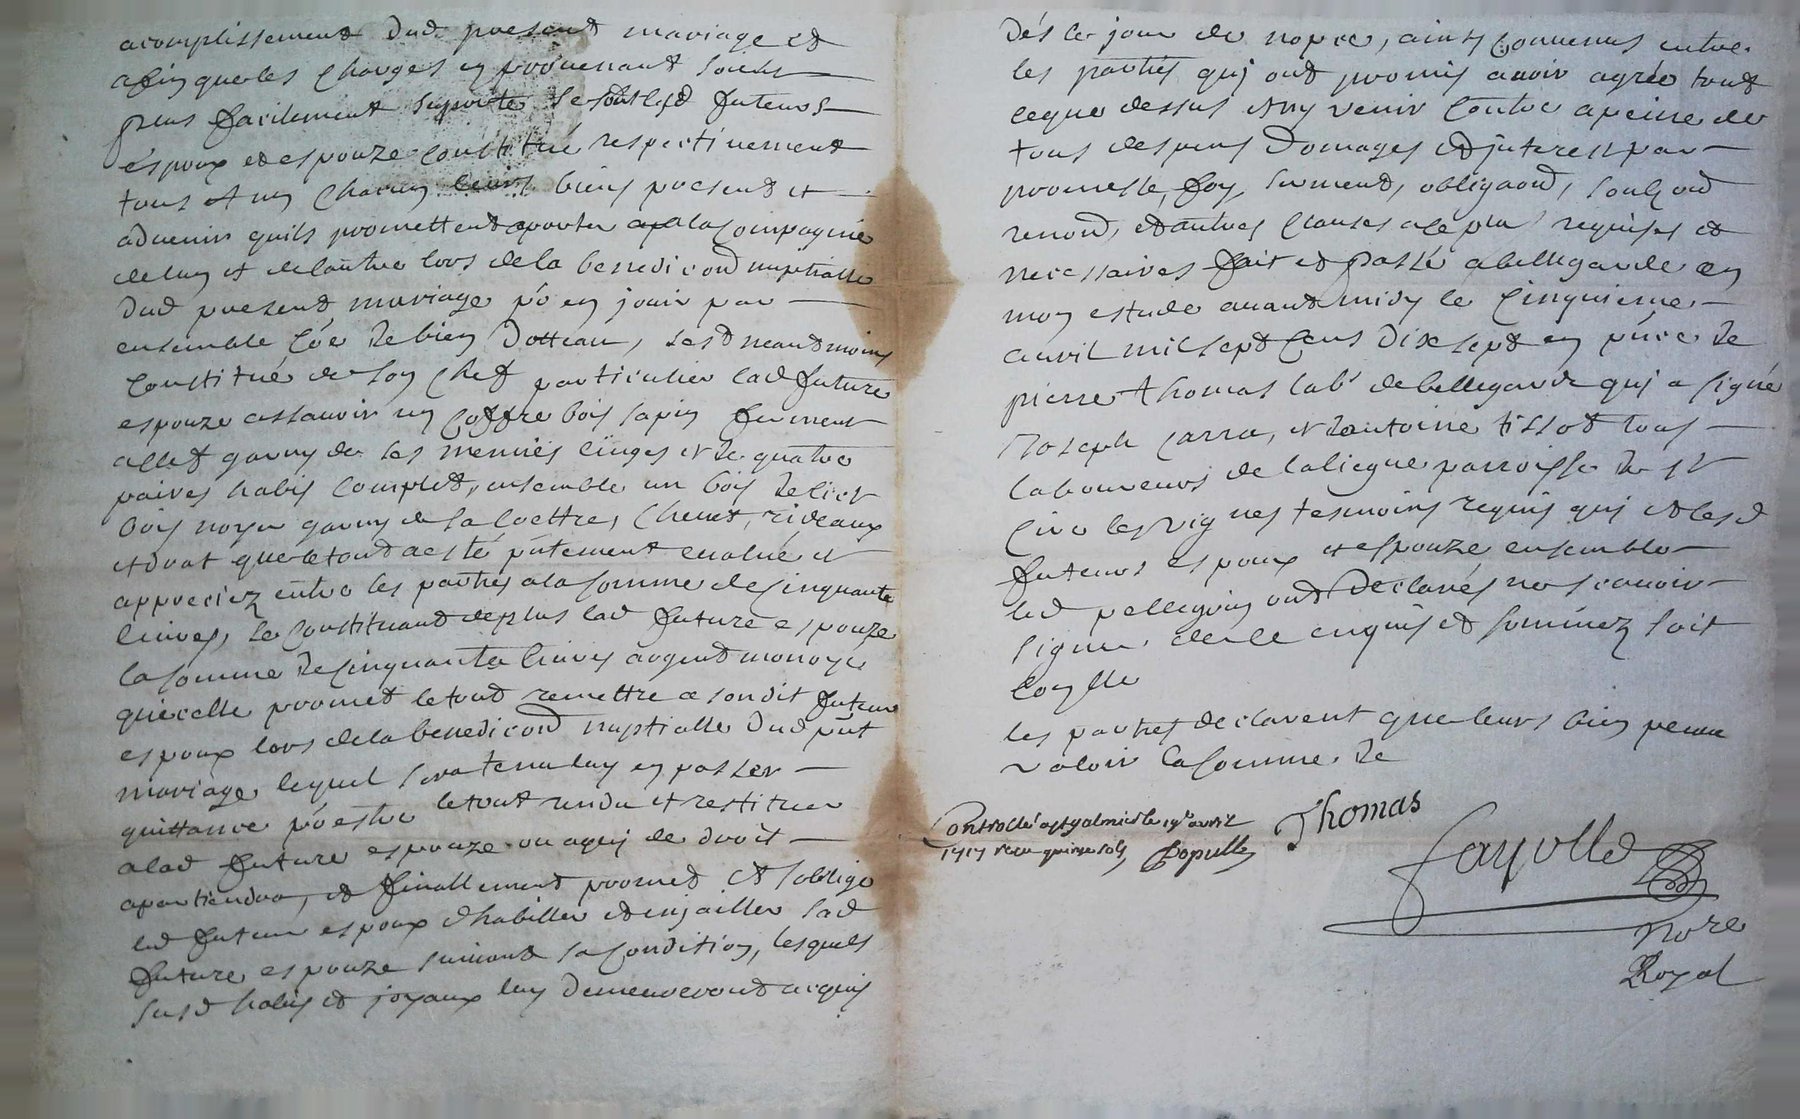 acomplissement dud present mariage et
afin que les charges en provenant soient
plus facilement suporté se sont lesd futurs
éspoux et espouze constitué respectivement
tous et un chacun leurs biens present et
advenir quils promettent aporter a la compagnie
de lun et de lautre lors de la benediction nuptialle
dud present mariage po en jouir par
ensemble coe de bien dottaux, sest neantmoins
constitué de son chef particulier lad future
espouze assavoir un coffre bois sapin fermant
a clef garny de ses menues linges et de quatre
paires habis complet, ensemble un bois de lict
bois noyer garny de sa coettre, chevet, rideaux
et drat que le tout a esté pntement evalué et
appreciez entre les parties a la somme de cinquante
livres, se constituant de plus lad future espouze
la somme de cinquante livres argent monoyé
quicelle promet le tout remettre a sondit futeur
espoux lors de la benediction nuptialle dud pnt
mariage lequel sera tenu luy en passer
quittance po estre le tout rendu et restituer
a lad future espouze ou a qui de droit
apartiendra, et finallement promet et soblige
led futeur espoux dhabiller et enjoailler lad
future espouze suivant sa condition, lesquels
susd habis et joyaux luy demeureront acquis
dés le jour de nopce, ainsy convenus entre
les parties qui ont promis avoir agrée tout
ceque dessus et ny venir contre a peine de
tous despens domages et interest par
promesse, foy, serment, obligaon,
renon, et autres clauses a ce plus requises et
necessaires fait et passé a bellegarde en
mon estude avant midy le cinquieme
avril mil sept cens dix sept en pnce de
pierre thomas labr de bellegarde qui a signé
Joseph carra, et antoine tissot tous
laboureurs de la liegue parroisse de st
Cire les vignes tesmoins requis qui et lesd
futeurs espoux et espouze ensemble
led pellegrin ont declarés ne scavoir
signer de ce enquis et sommez soit
conlle
les parties declarent que leurs bien peuve
valoir la somme de
Controllé a st galmier le 19e avril
1717 receu quinze sols
Thomas
fayolle
nore
Royal